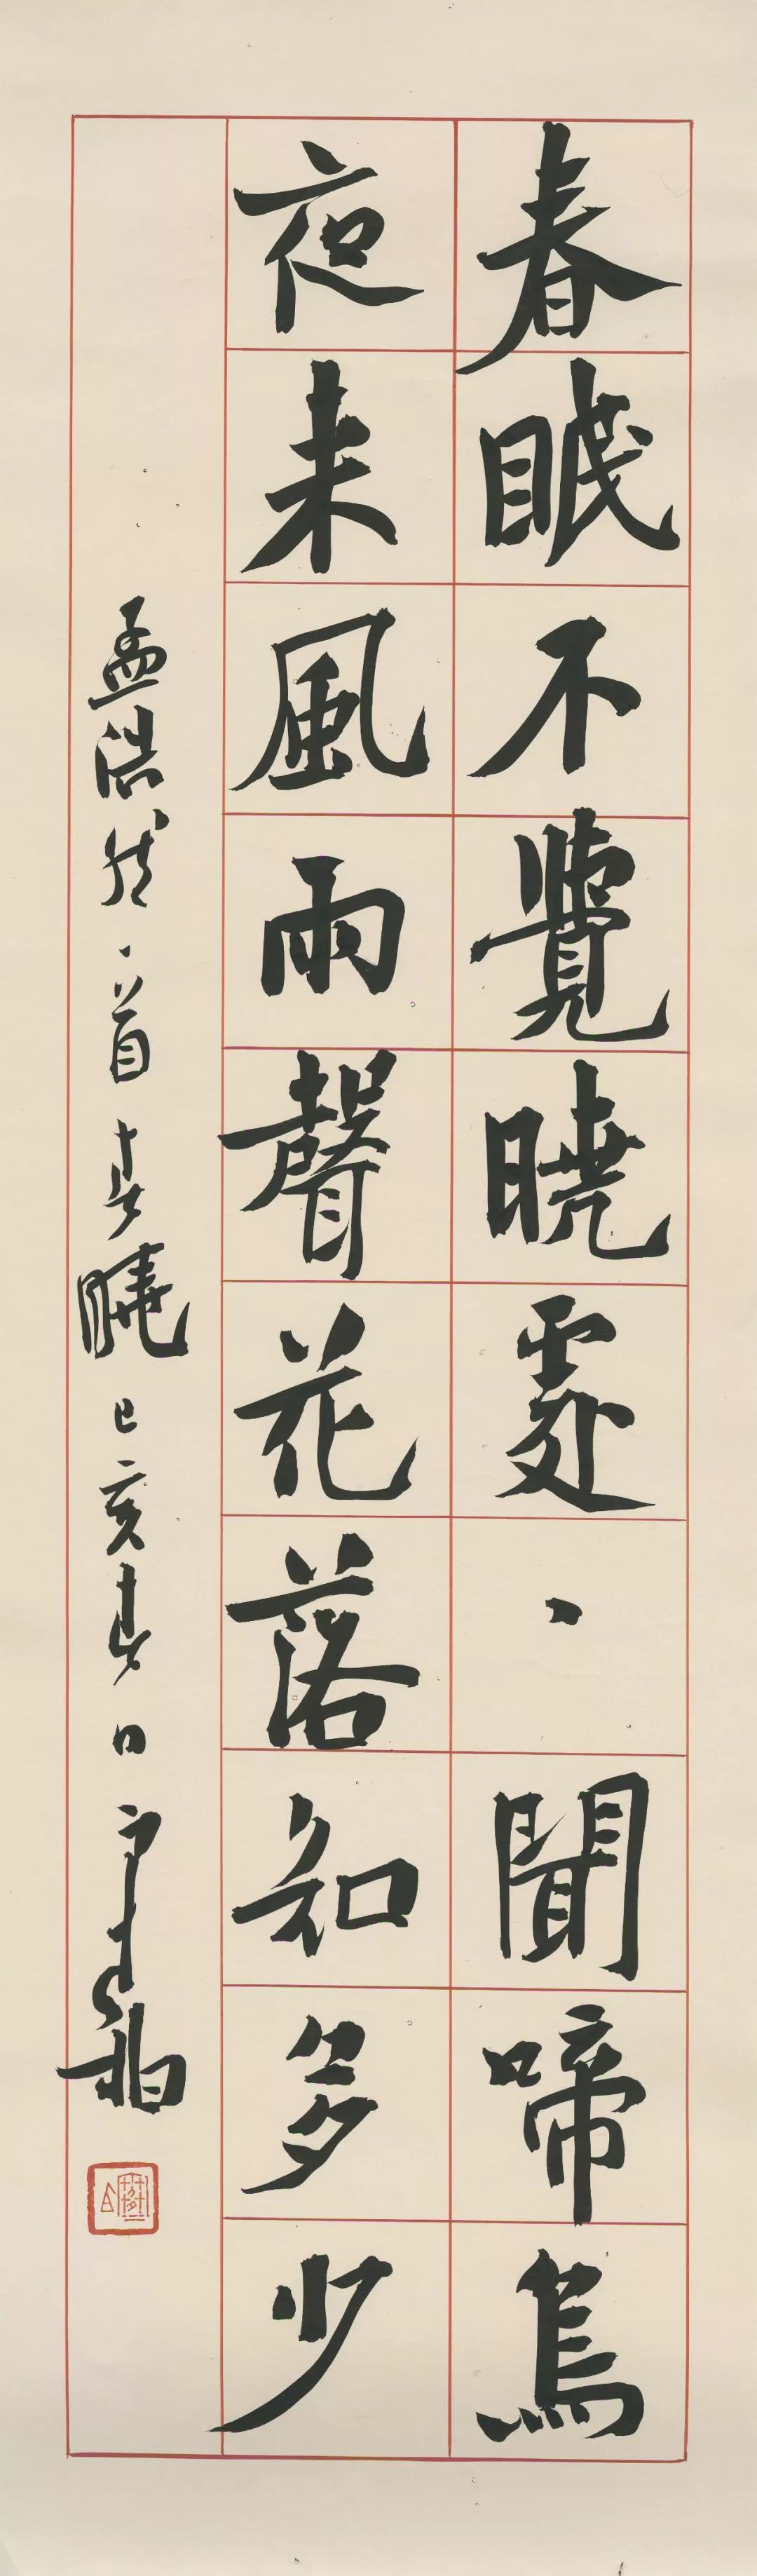 春眠不覺曉處、聞啼鳥
夜来風雨聲花落知多少
孟浩然、首春曉己亥春日